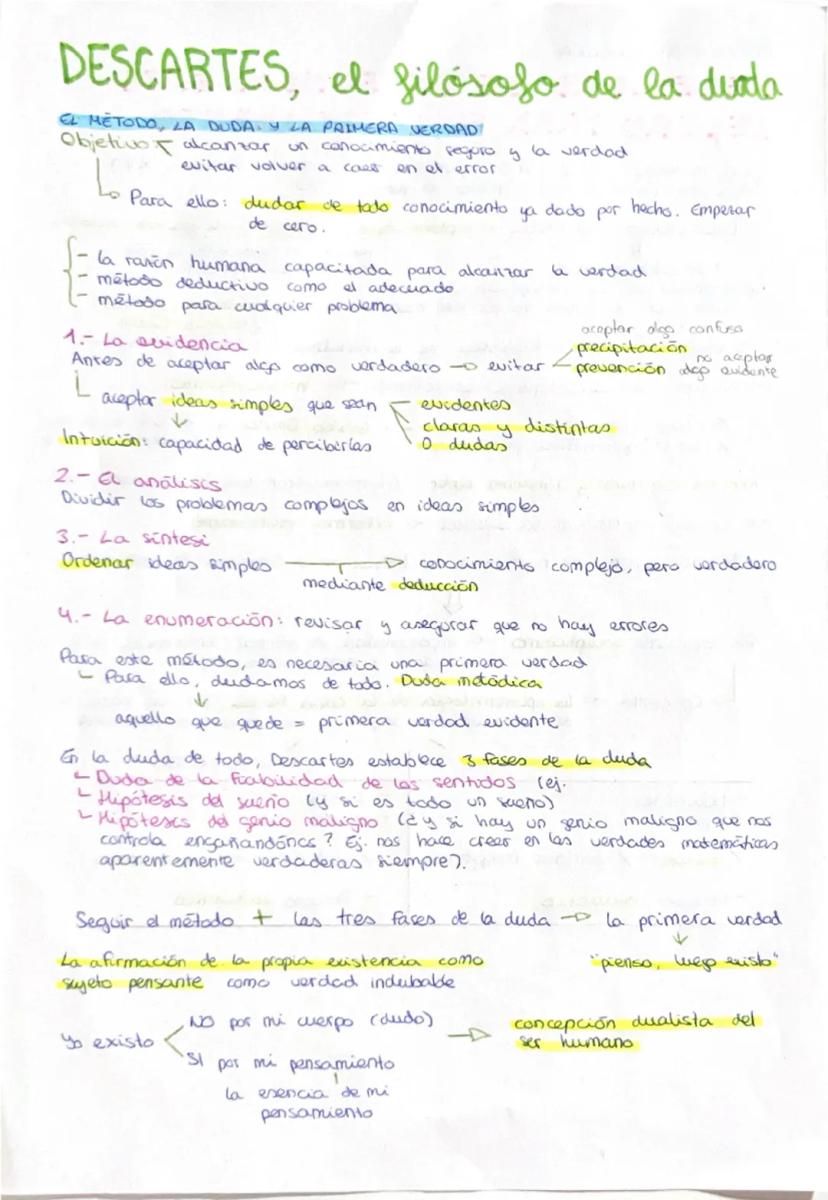 DESCARTES, el filósofo de la duda
EL MÉTODO, LA DUDA Y LA PRIMERA VERDAD
Objetivo alcanzar un conocimiento seguro y la verdad
evitar volver a caer en el error
Para ello: dudar de todo conocimiento ya dado por hecho. Empezar
de cero.
- la razón humana capacitada para alcanzar la verdad
- método deductivo como el adecuado
- método para cualquier problema
aceptar algo confuso
1.- La evidencia
precipitación
Antes de aceptar algo como verdadero → evitar prevención no aceptar algo evidente
aceptar ideas simples que sean evidentes
claras y distintas
Intuición: capacidad de percibirlas 0 dudas
2.- El análisis
Dividir los problemas complejos en ideas simples
3.- La síntesi
Ordenar ideas simples → conocimiento complejo, pero verdadero
mediante deducción
4.- La enumeración: revisar y asegurar que no hay errores
Para este método, es necesaria una primera verdad
Para ello, dudamos de todo. Duda metódica
aquello que quede = primera verdad evidente
En la duda de todo, Descartes establece 3 fases de la duda
Duda de la fiabilidad de los sentidos (ej.
Hipótesis del sueño (y si es todo un sueño)
Hipótesis del genio maligno (¿y si hay un genio maligno que nos
controla engañandónos? Ej. nos hace creer en las verdades matemáticas
aparentemente verdaderas siempre).
Seguir el método + las tres fases de la duda → la primera verdad
La afirmación de la propia existencia como "pienso, luego existo"
sujeto pensante como verdad indubable
NO por mi cuerpo (dudo) → concepción dualista del
Yo existo ser humano
SI por mi pensamiento
la esencia de mi
pensamiento